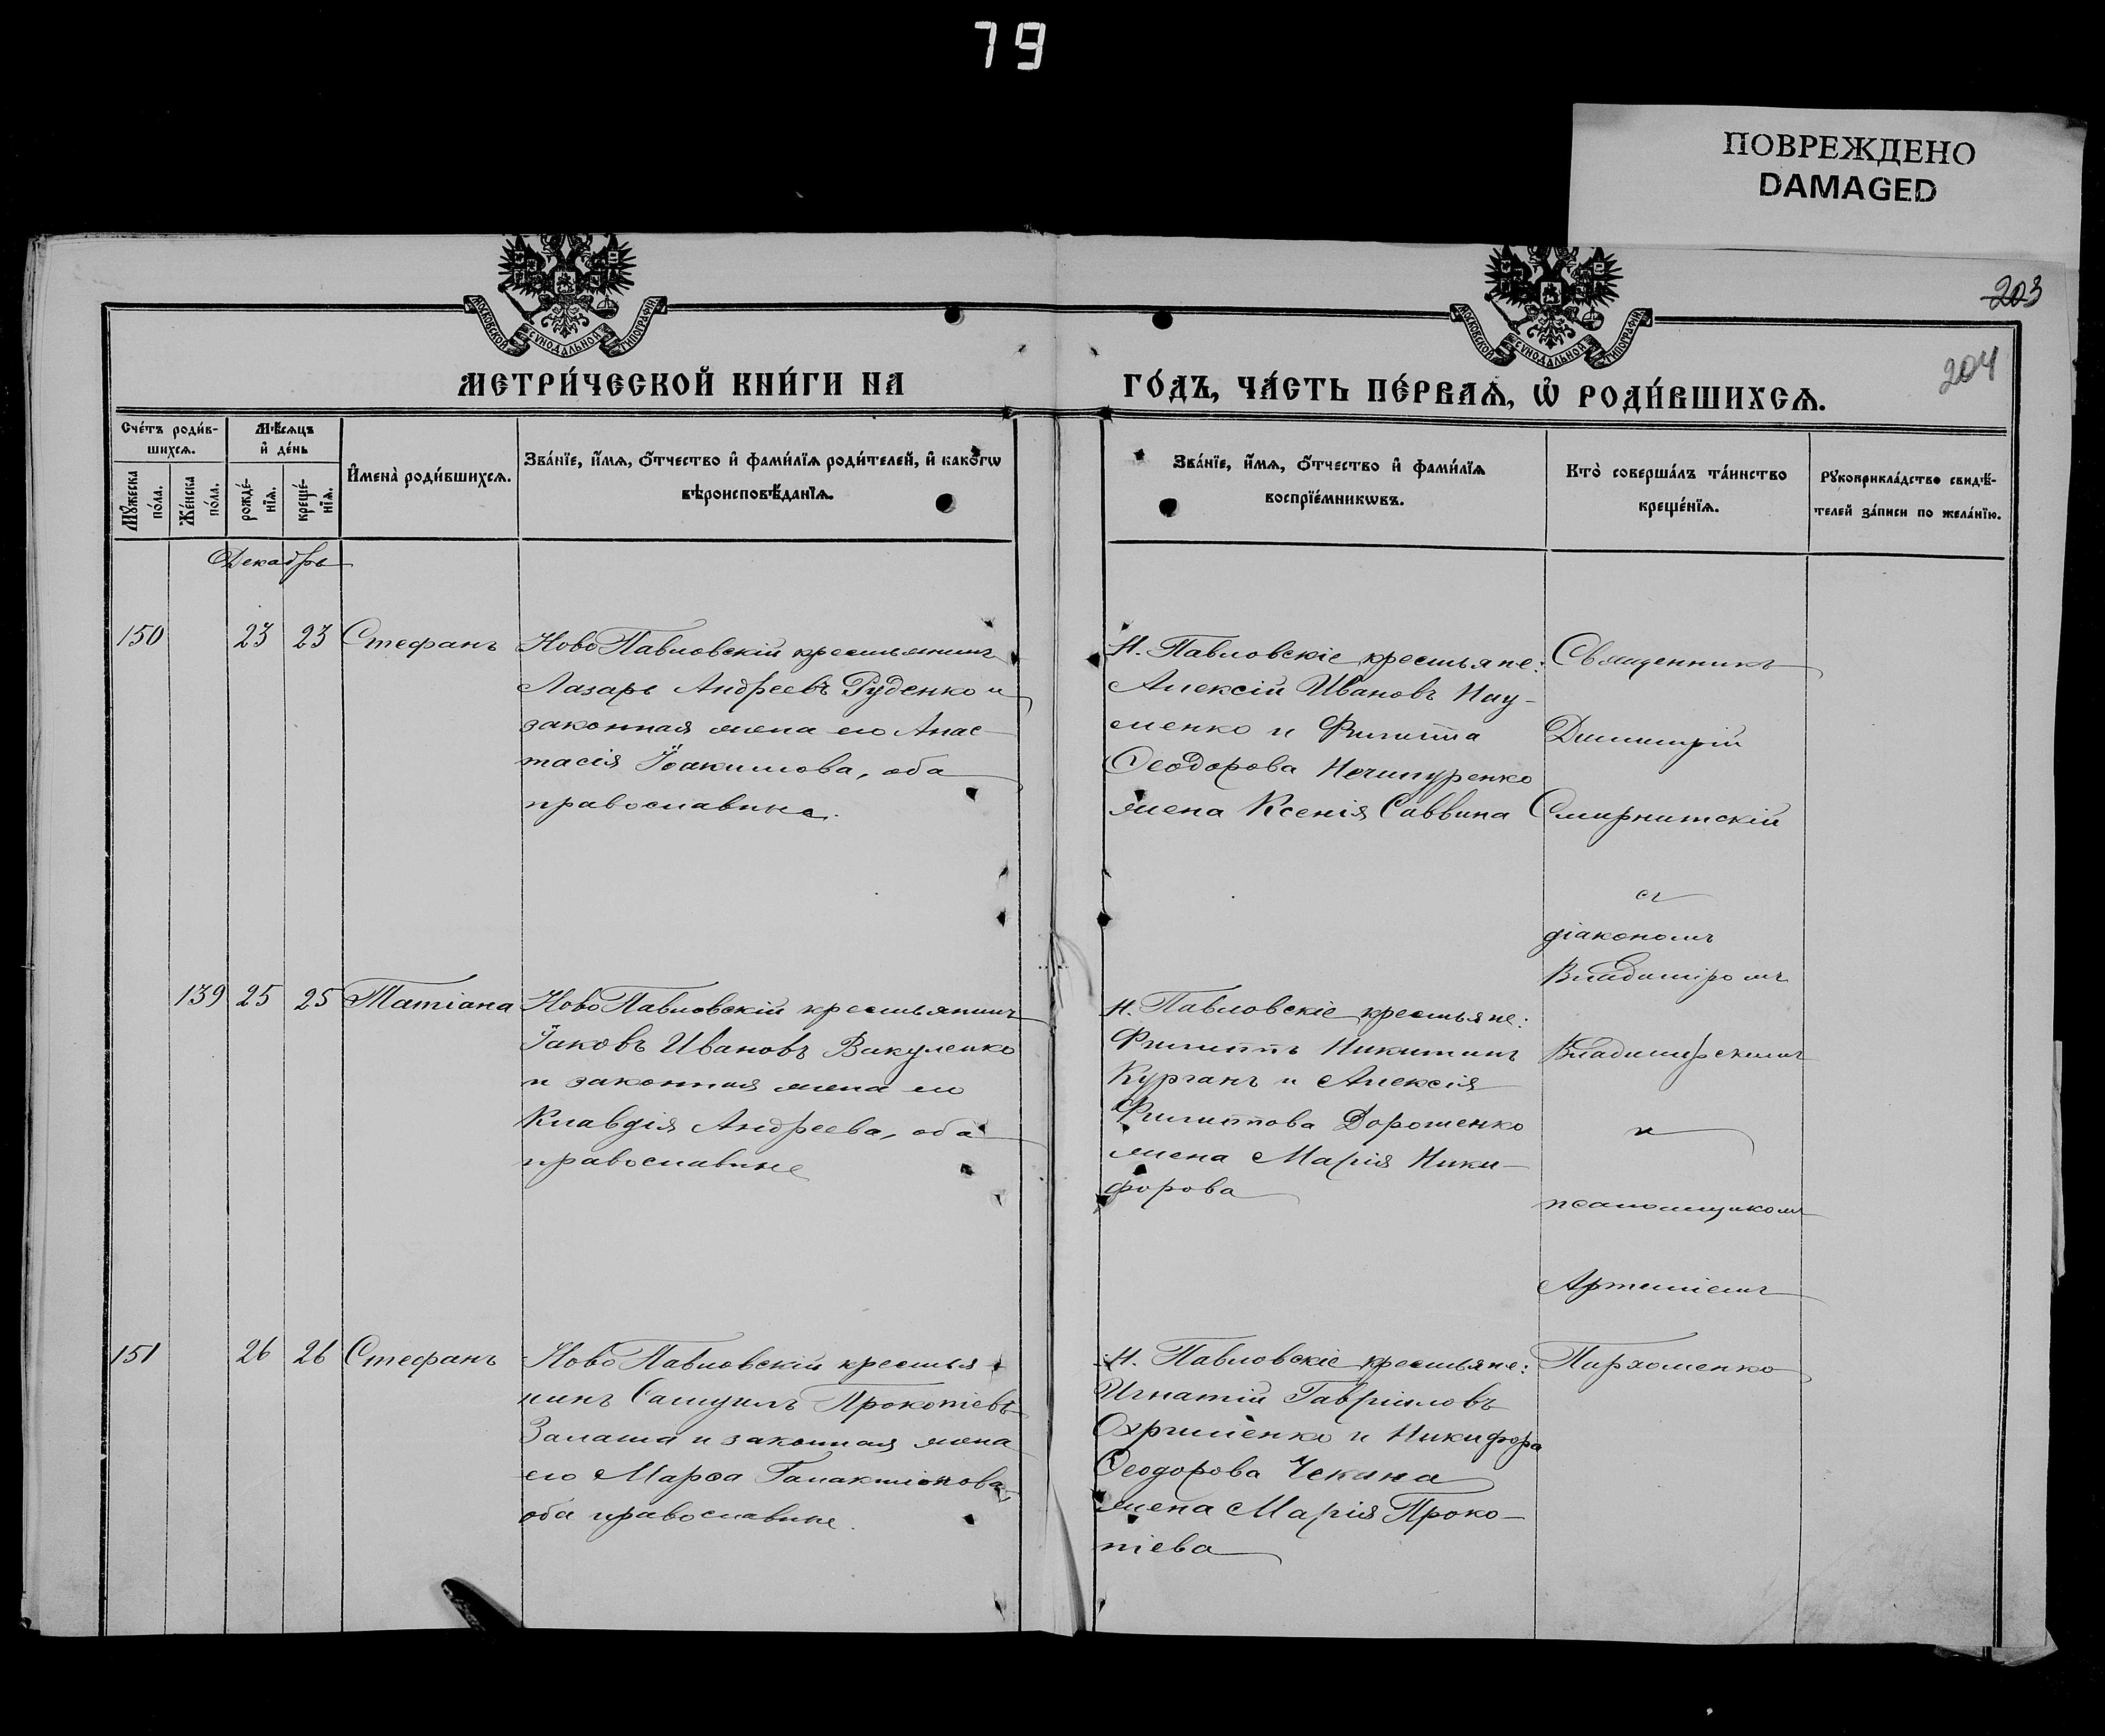 79
ПОВРЕЖДЕНО
DAMAGED
203
204
МОСКОВСКОЙ СѴНОДАЛЬНОЙ ТИПОГРАФІИ
МОСКОВСКОЙ СѴНОДАЛЬНОЙ ТИПОГРАФІИ
МЕТРИ́ЧЕСКОЙ КНИ́ГИ НА
ГО́ДЪ, ЧА́СТЬ ПЕ́РВАѦ, Ѡ҆ РОДИ́ВШИХСѦ.
Сче́тъ роди́в-
шихсѧ.
Мѣ́сѧцъ
и҆ де́нь
Мꙋ́жеска
по́ла.
Же́нска
по́ла.
рожде́-
нїѧ.
креще́-
нїѧ.
И҆мена̀ роди́вшихсѧ.
Зва́нїе, и҆́мѧ, ѻ҆́тчество и҆ фами́лїѧ роди́телей, и҆ како́гѡ
вѣроисповѣ́данїѧ.
Зва́нїе, и҆́мѧ, ѻ҆́тчество и҆ фами́лїѧ
воспрїе́мникѡвъ.
Кто̀ соверша́лъ та́инство
креще́нїѧ.
Рꙋкоприкла́дство свидѣ́-
телей за́писи по жела́нїю.
Декабрь
150 23 23 Стефанъ
НовоПавловскій крестьянинъ
Лазарь Андреевъ Руденко и
законная жена его Анас
тасія Іоакимова, оба
православные.
Н. Павловскіе крестьяне:
Алексій Ивановъ Нау-
менко и Филиппа
Ѳеодорова Нечипуренко
жена Ксенія Саввина
Священникъ
Димитрій
Смирнитскій
съ
діакономъ
Владиміромъ
Владимірскимъ
и
псаломщикомъ
Артеміемъ
Пархоменко
139 25 25 Татіана
НовоПавловскій крестьянинъ
Іаковъ Ивановъ Вакуленко
и законная жена его
Клавдія Андреева, оба
православные
Н. Павловскіе крестьяне:
Филиппъ Никитинъ
Курганъ и Алексія
Филиппова Дорошенко
жена Марія Ники-
форова
151 26 26 Стефанъ
Ново Павловскій крестья
нинъ Самуилъ Прокопіевъ
и законная жена
его Марѳа Галактіонова,
оба православные.
Н. Павловскіе крестьяне:
Игнатій Гавріиловъ
Охрименко и Никифора
Ѳеодорова Чекина
жена Марія Проко-
піева